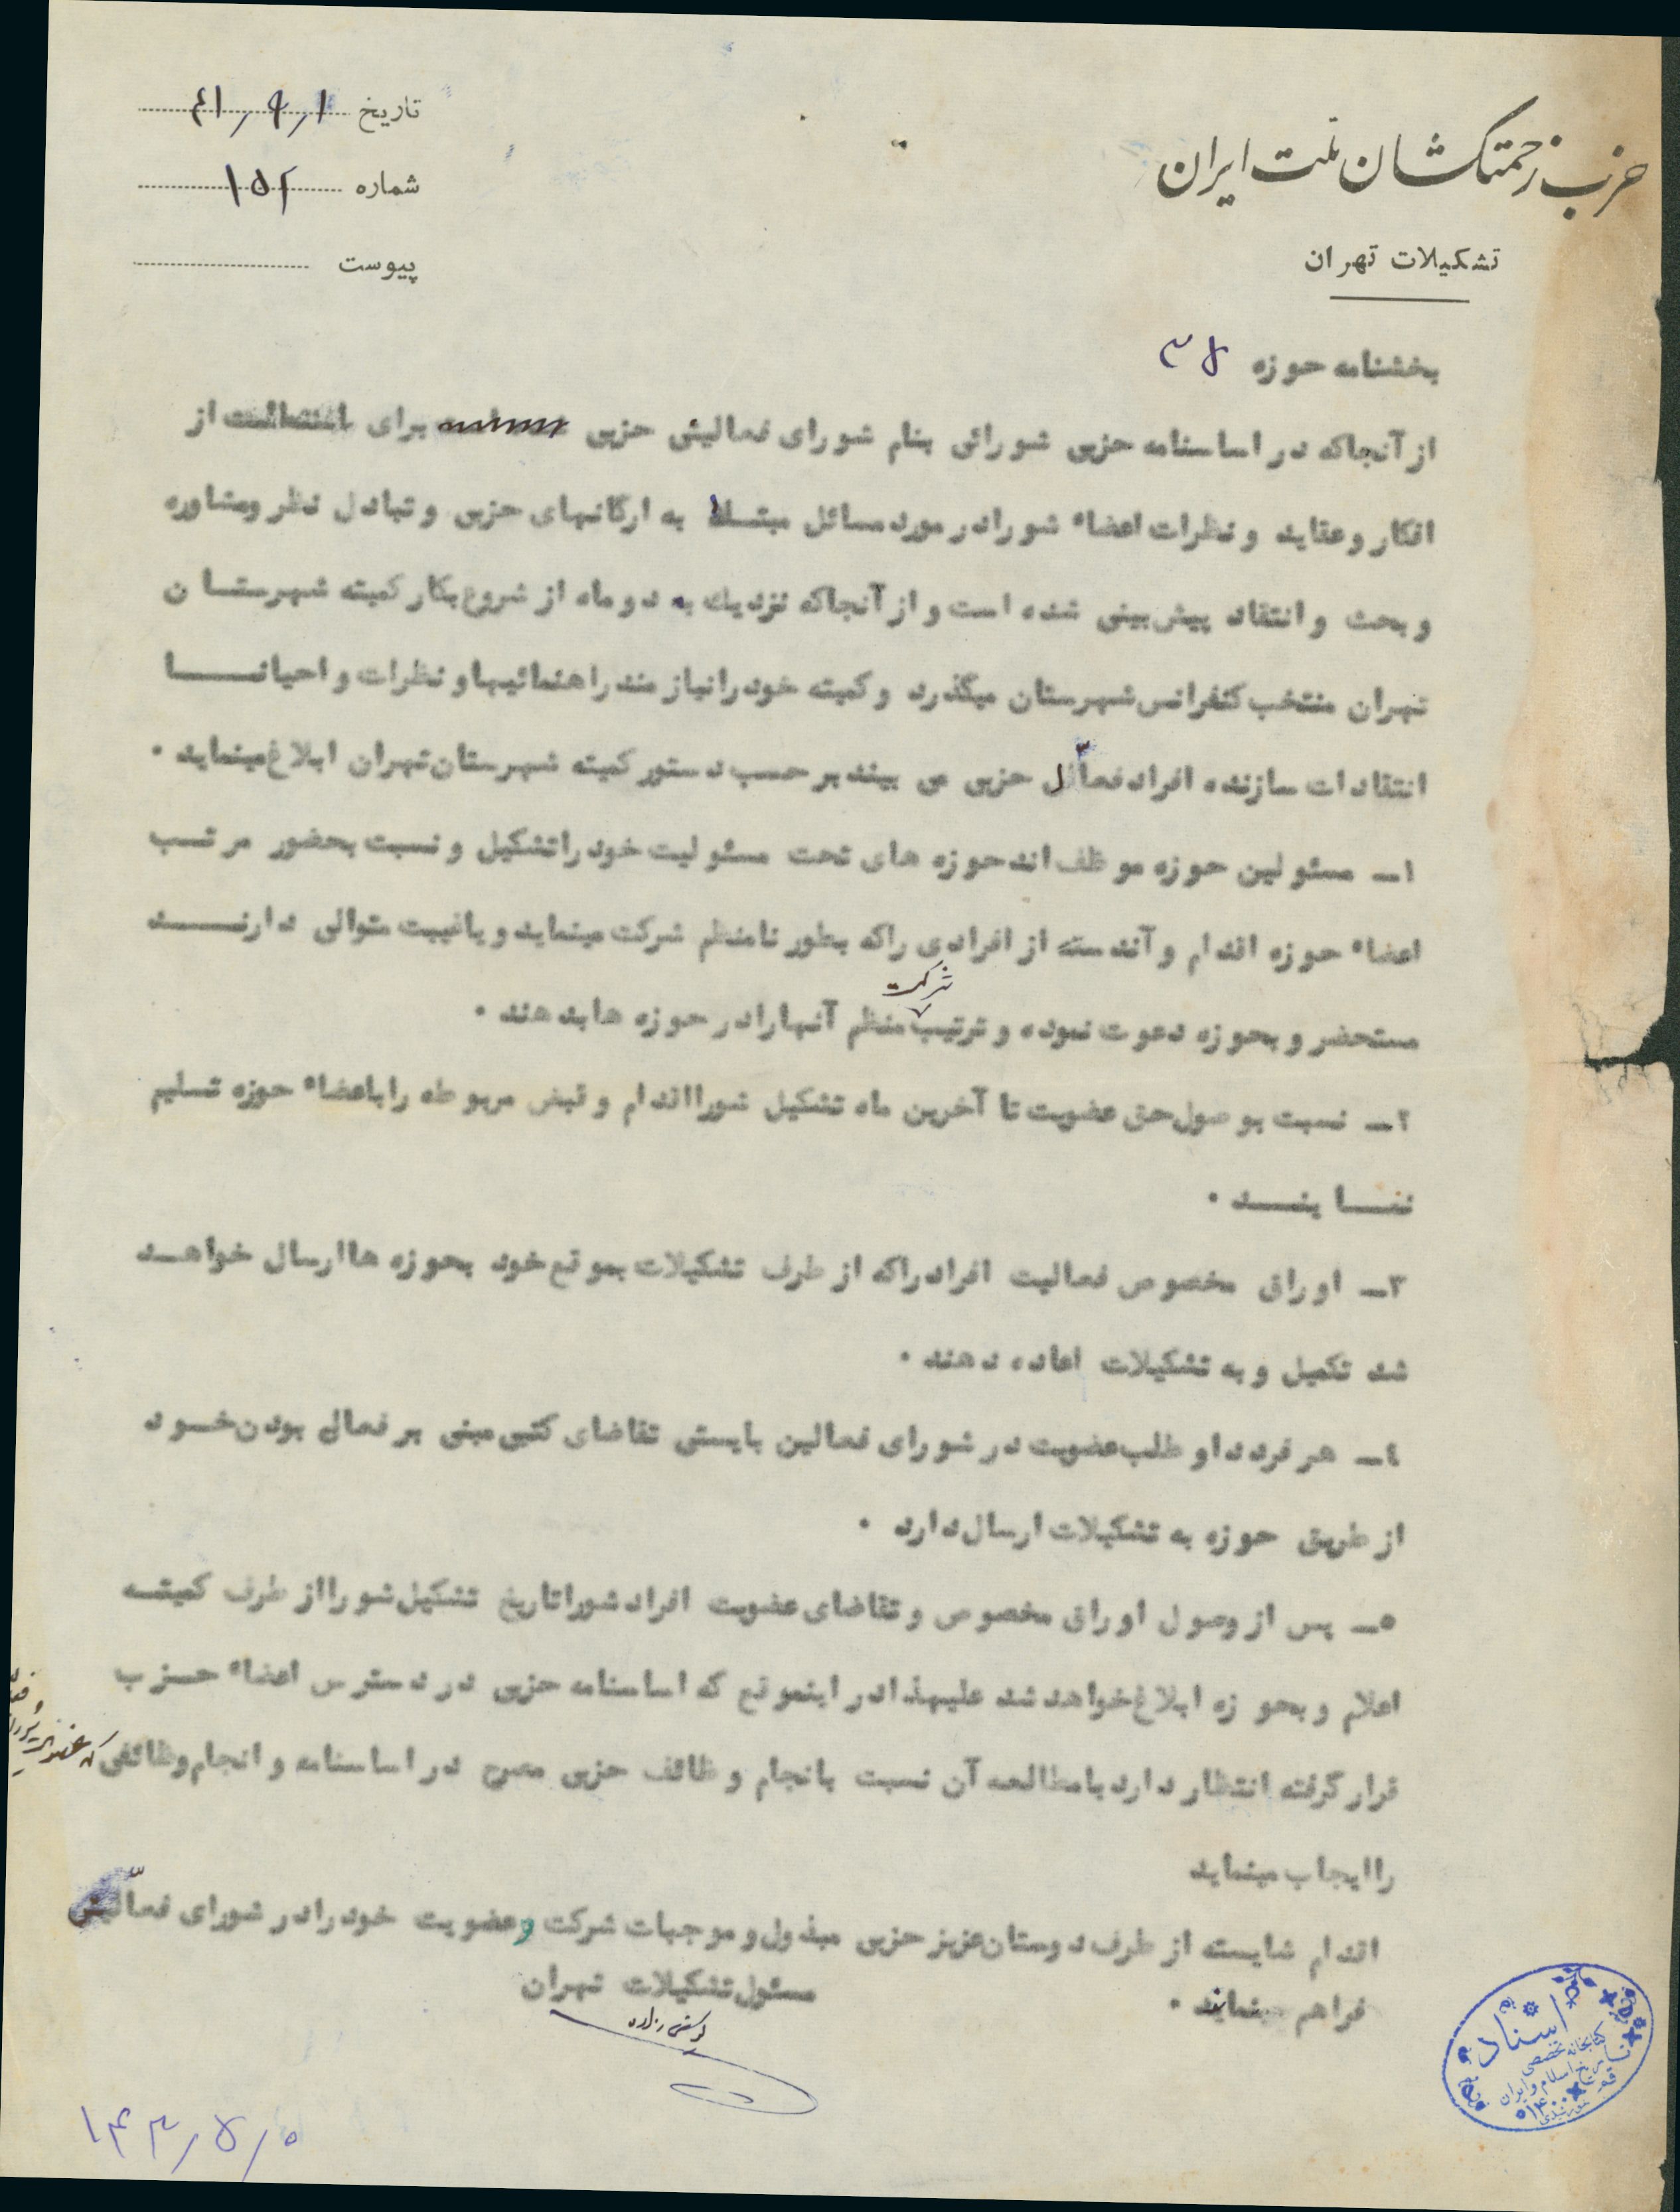 حزب زحمتکشان ملت ایران
تشکیلات تهران
تاریخ ۴۱/۹/۱
شماره ۱۵۲
پیوست
بخشنامه حوزه
از آنجاکه در اساسنامه حزبی شورائی بنام شورای فعالیتی حزبی برای از
افکار و عقاید و نظرات اعضاء شورا در مورد مسائل مبتلا به ارگانهای حزبی و تبادل نظر ومشاوره
و بحث و انتقاد پیش بینی شده است و از آنجاکه نزدیك به دو ماه از شروع بکار کمیته شهرستـان
تهران منتخب کنفرانس شهرستان میگذرد و کمیته خود را نیازمند راهنمائیها و نظرات و احیانـــا
انتقادات سازنده افراد فعّال حزبی می بیند بر حسب دستور کمیته شهرستان تهران ابلاغ مینماید .
۱ــ مسئولین حوزه موظف اند حوزه های تحت مسئولیت خود را تشکیل و نسبت بحضور مرتـب
اعضاء حوزه اقدام و آندسته از افرادی راکه بطور نامنظم شرکت مینماید و یا غیبت متوالی دارنـــد
مستحضر و بحوزه دعوت نموده و ترتیب شرکت منظم آنها را در حوزه ها بدهند .
۲ــ نسبت بوصول حق عضویت تا آخرین ماه تشکیل شورا اقدام و قبض مربوطه را باعضاء حوزه تسلیم
نمــا ینــد .
۳ــ اوراق مخصوص فعالیت افراد راکه از طرف تشکیلات بموقع خود بحوزه ها ارسال خواهـد
شد تکمیل و به تشکیلات اعاده دهند .
٤ــ هر فرد داوطلب عضویت در شورای فعالین بایستی تقاضای کتبی مبنی بر فعال بودن خـود
از طریق حوزه به تشکیلات ارسال دارد .
۵ــ پس از وصول اوراق مخصوص و تقاضای عضویت افراد شورا تاریخ تشکیل شورا از طرف کمیتـه
اعلام و بحوزه ابلاغ خواهد شد علیهذا در اینموقع که اساسنامه حزبی در دسترس اعضاء حـزب
قرار گرفته انتظار دارد با مطالعه آن نسبت بانجام وظائف حزبی مصرح در اساسنامه و انجام وظائفی که عضویت
را ایجاب مینماید
اقدام شایسته از طرف دوستان عزیز حزبی مبذول و موجبات شرکت و عضویت خود را در شورای فعّالین
فراهم نمایند .
مسئول تشکیلات تهران
اسناد
کتابخانه تخصصی
تاریخ اسلام و ایران
قم